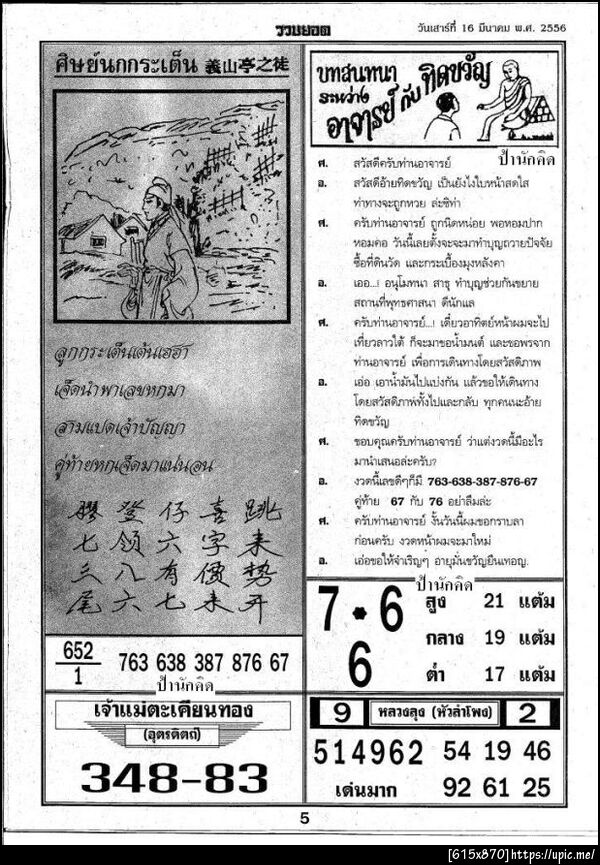 รวบยอด
วันเสาร์ที่ 16 มีนาคม พ.ศ. 2556
ศิษย์นกกระเต็น 義山亭之徒
ลูกกระเต็นเต้นเฮฮา
เจ็ดนำพาเลขหกมา
สามแปดเจ้าปัญญา
คู่ท้ายหกเจ็ดมาแน่นอน
膠登仔喜跳
七領六字来
三八有價勢
尾六七来开
652
1
763 638 387 876 67
ป๋านักคิด
เจ้าแม่ตะเคียนทอง
(อุตรดิตถ์)
348-83
บทสนทนา
ระหว่าง
อาจารย์ กับ ทิดขวัญ
ป๋านักคิด
ศ. สวัสดีครับท่านอาจารย์
อ. สวัสดีอ้ายทิดขวัญ เป็นยังไงใบหน้าสดใส
ท่าทางจะถูกหวย ล่ะซิท่า
ศ. ครับท่านอาจารย์ ถูกนิดหน่อย พอหอมปาก
หอมคอ วันนี้เลยตั้งจะจะมาทำบุญถวายปัจจัย
ซื้อที่ดินวัด และกระเบื้องมุงหลังคา
อ. เออ...! อนุโมทนา สาธุ ทำบุญช่วยกันขยาย
สถานที่พุทธศาสนา ดีนักแล
ศ. ครับท่านอาจารย์...! เดี๋ยวอาทิตย์หน้าผมจะไป
เที่ยวลาวใต้ ก็จะมาขอน้ำมนต์ และขอพรจาก
ท่านอาจารย์ เพื่อการเดินทางโดยสวัสดิภาพ
อ. เอ่อ เอาน้ำมันไปแบ่งกัน แล้วขอให้เดินทาง
โดยสวัสดิภาพทั้งไปและกลับ ทุกคนนะอ้าย
ทิดขวัญ
ศ. ขอบคุณครับท่านอาจารย์ ว่าแต่งวดนี้มีอะไร
มานำเสนอล่ะครับ?
อ. งวดนี้เลขดีๆก็มี 763-638-387-876-67
คู่ท้าย 67 กับ 76 อย่าลืมล่ะ
ศ. ครับท่านอาจารย์ งั้นวันนี้ผมขอกราบลา
ก่อนครับ งวดหน้าผมจะมาใหม่
อ. เอ่อขอให้จำเริญๆ อายุมั่นขวัญยืนเทอญ.
ป๋านักคิด
7*6
6
สูง 21 แต้ม
กลาง 19 แต้ม
ต่ำ 17 แต้ม
9 หลวงลุง (หัวลำโพง) 2
514962 54 19 46
เด่นมาก 92 61 25
5
[615x870]https://upic.me/